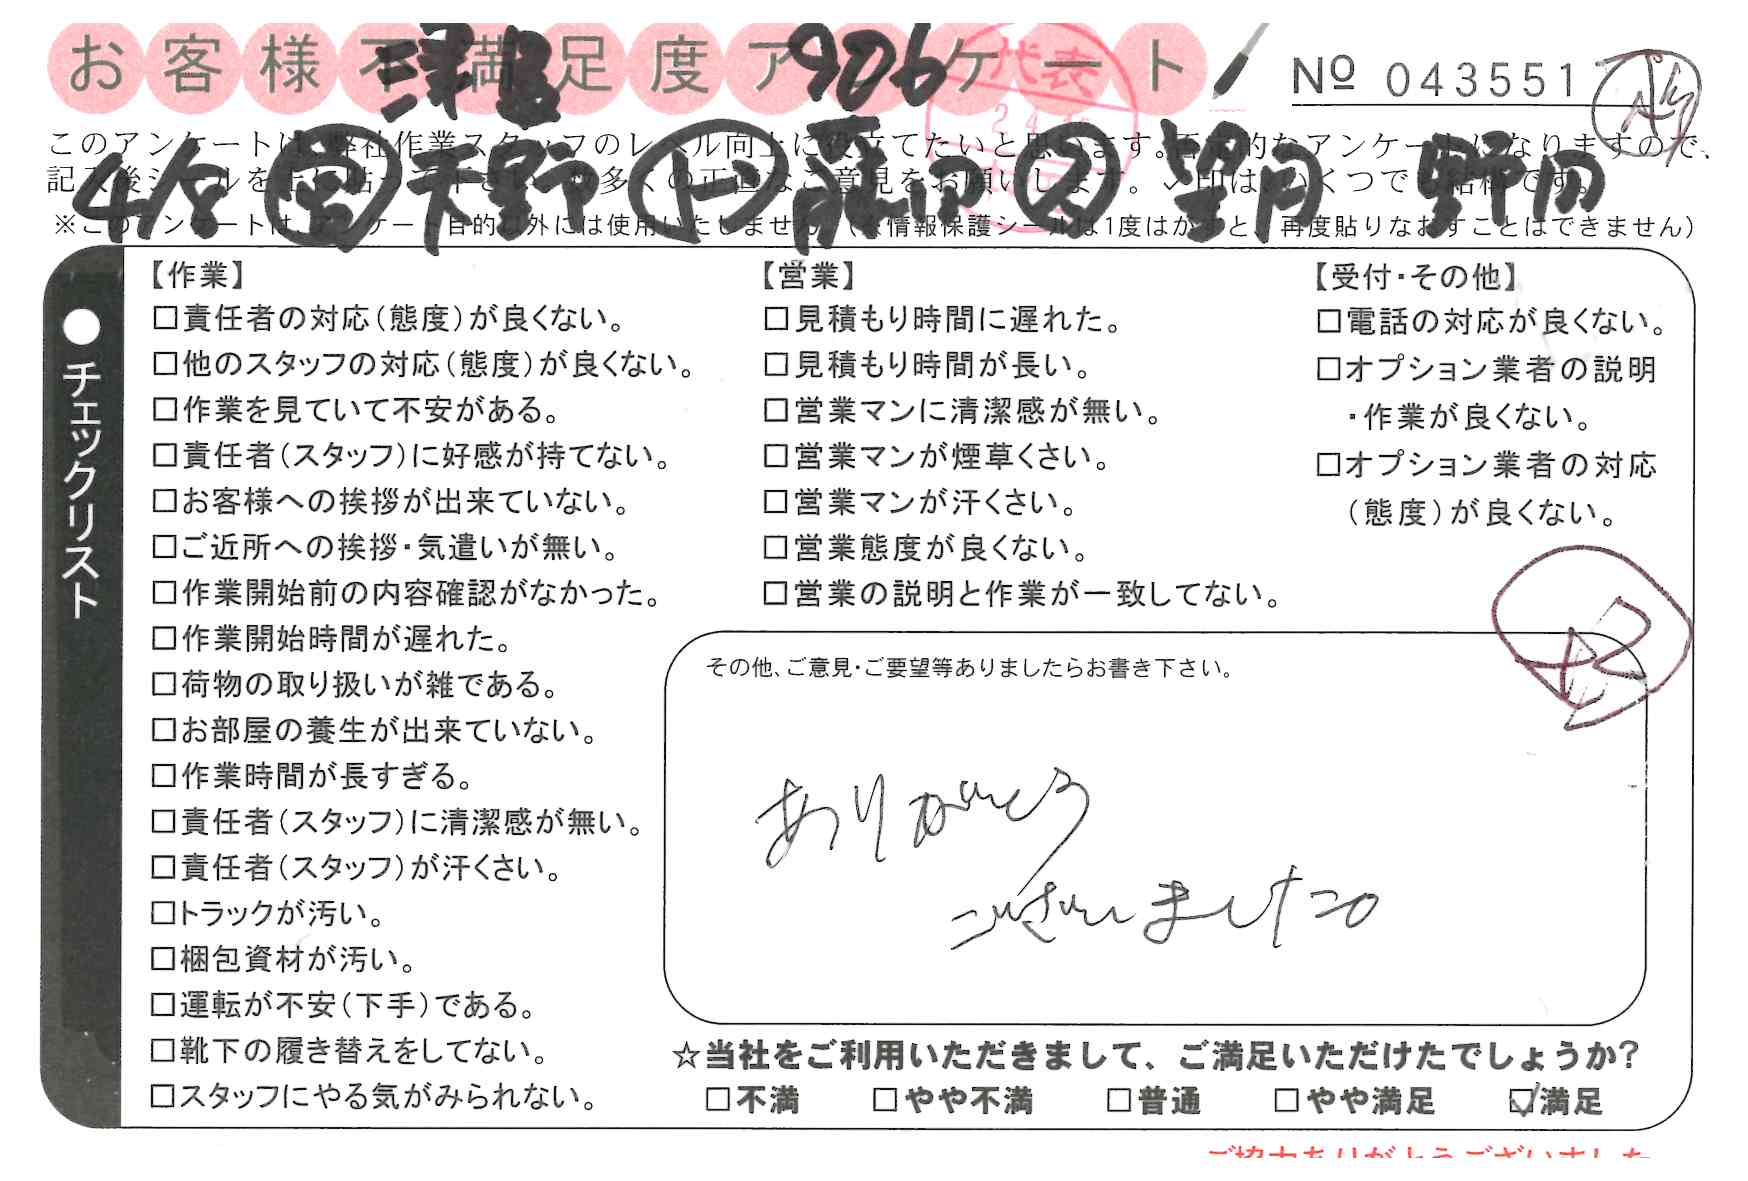 お客様不満足度アンケート
906
№ 043551
このアンケートは、弊社作業スタッフのレベル向上に役立てたいと思います。否定的なアンケートになりますので、
記入後シールを上に貼って下さい。数多くの正直なご意見をお願いします。✓印は、いくつでも結構です。
4/8 営 天野 ト 藤田 ス 望月 野田
※このアンケートは、アンケート目的以外には使用いたしません。(※情報保護シールは1度はがすと、再度貼りなおすことはできません)
代表
●チェックリスト
【作業】
□責任者の対応(態度)が良くない。
□他のスタッフの対応(態度)が良くない。
□作業を見ていて不安がある。
□責任者(スタッフ)に好感が持てない。
□お客様への挨拶が出来ていない。
□ご近所への挨拶・気遣いが無い。
□作業開始前の内容確認がなかった。
□作業開始時間が遅れた。
□荷物の取り扱いが雑である。
□お部屋の養生が出来ていない。
□作業時間が長すぎる。
□責任者(スタッフ)に清潔感が無い。
□責任者(スタッフ)が汗くさい。
□トラックが汚い。
□梱包資材が汚い。
□運転が不安(下手)である。
□靴下の履き替えをしてない。
□スタッフにやる気がみられない。
【営業】
□見積もり時間に遅れた。
□見積もり時間が長い。
□営業マンに清潔感が無い。
□営業マンが煙草くさい。
□営業マンが汗くさい。
□営業態度が良くない。
□営業の説明と作業が一致してない。
【受付・その他】
□電話の対応が良くない。
□オプション業者の説明
・作業が良くない。
□オプション業者の対応
(態度)が良くない。
その他、ご意見・ご要望等ありましたらお書き下さい。
ありがとう
ございました。
☆当社をご利用いただきまして、ご満足いただけたでしょうか?
□不満 □やや不満 □普通 □やや満足 ☑満足
ご協力ありがとうございました